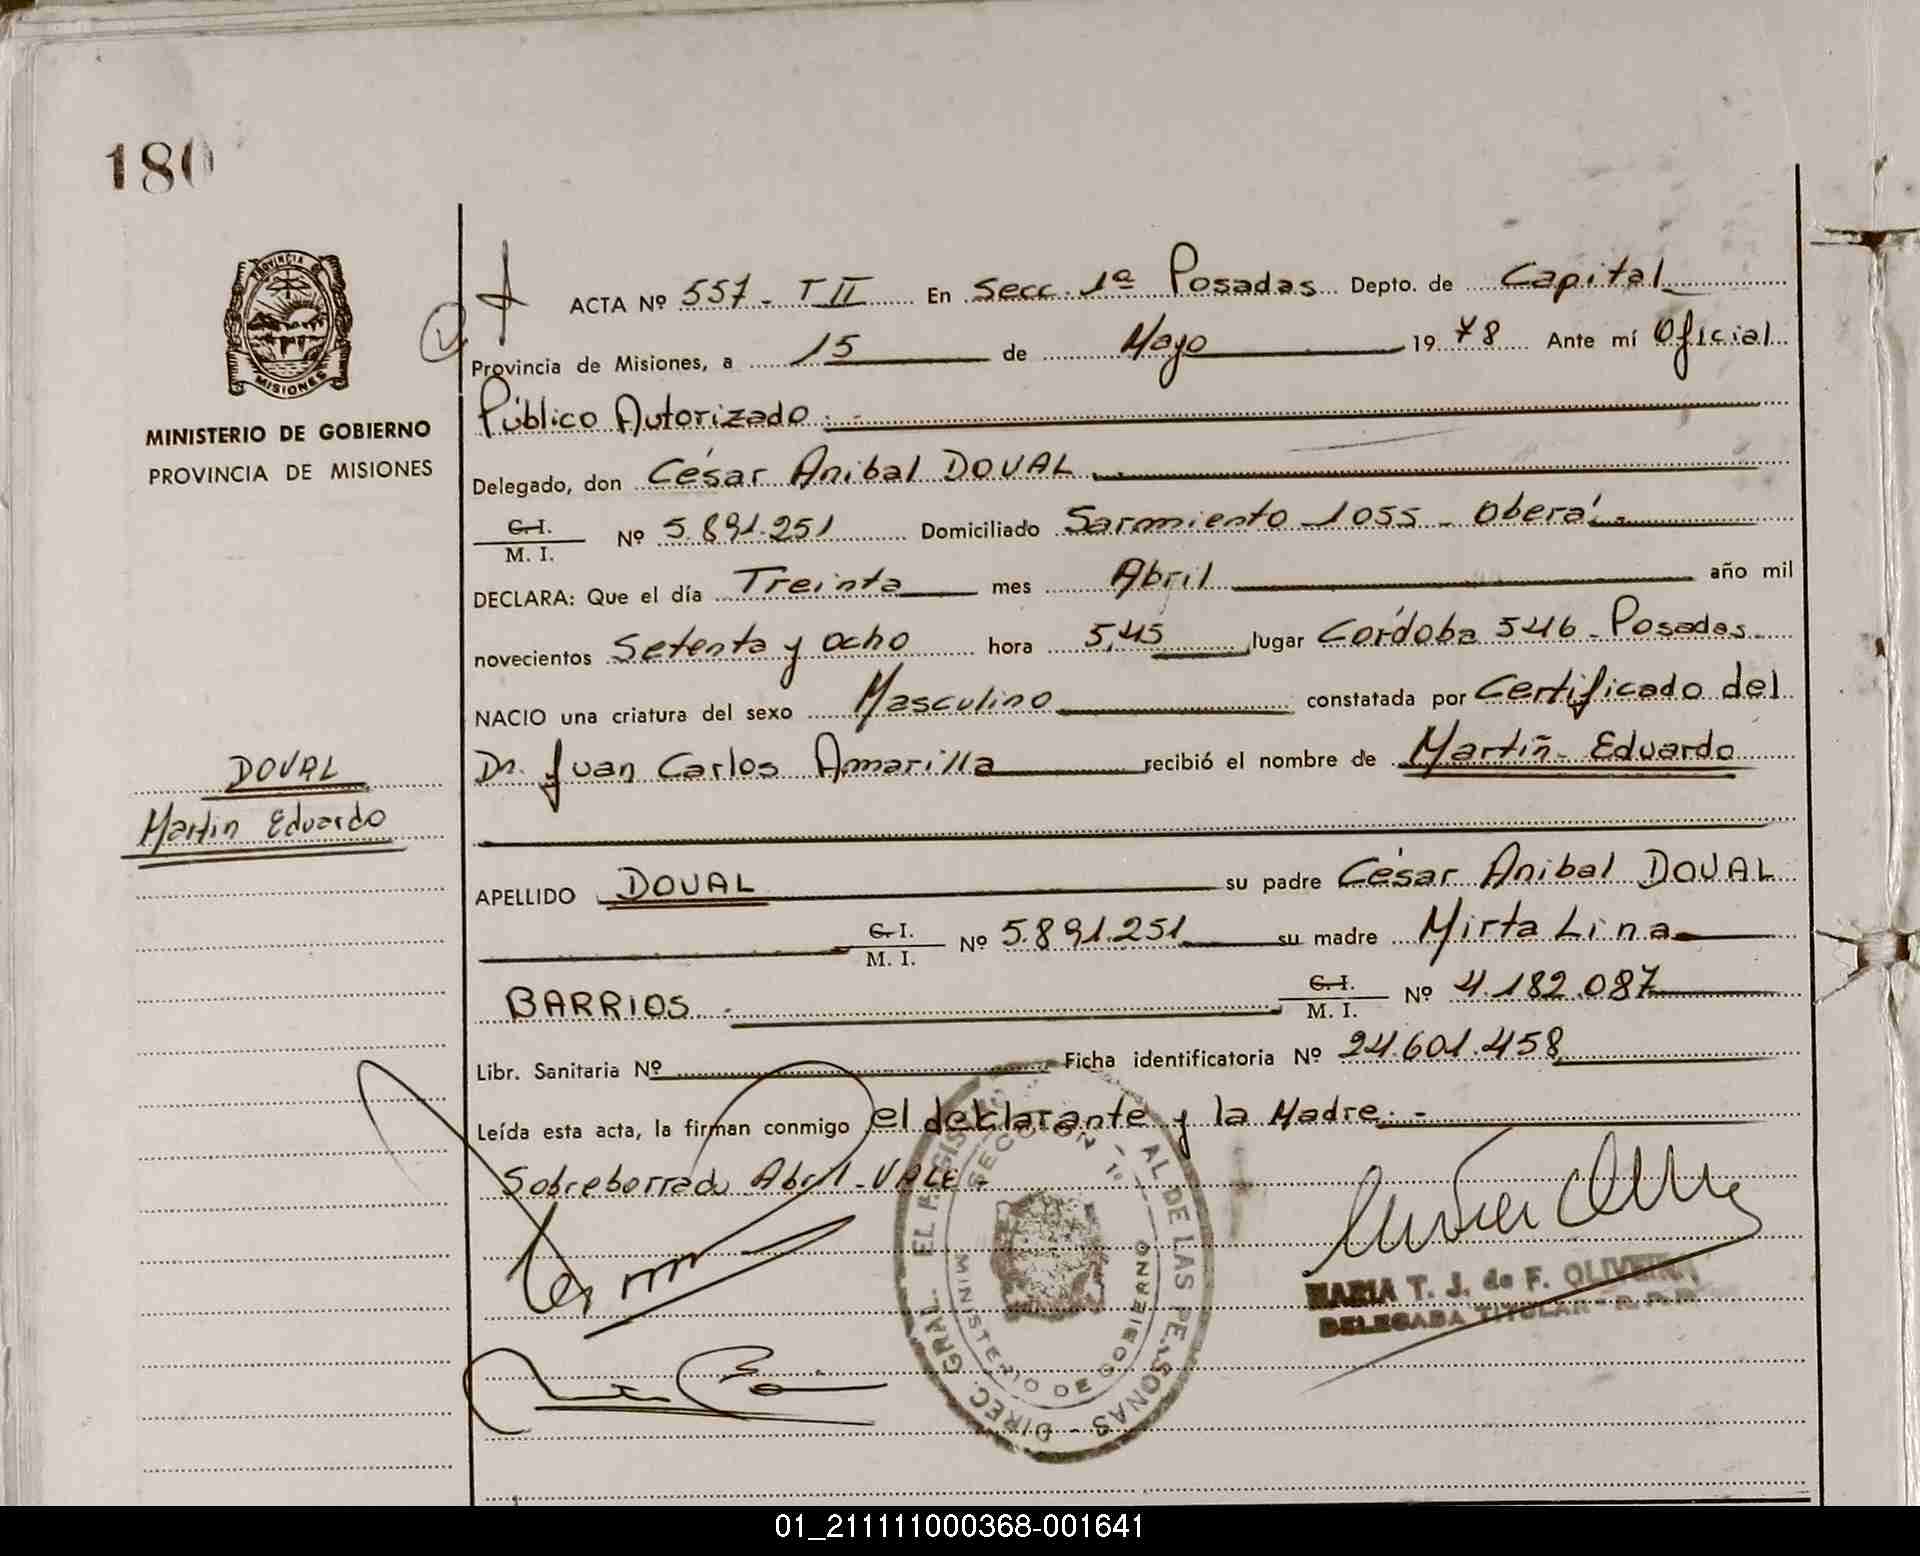 180
PROVINCIA DE
MISIONES
MINISTERIO DE GOBIERNO
PROVINCIA DE MISIONES
ACTA Nº 557 - T II En Secc. 1ª Posadas Depto. de Capital
Provincia de Misiones, a 15 de Mayo 1978 Ante mí Oficial
Público Autorizado . -
Delegado, don César Anibal DOVAL
C. I. / M. I. Nº 5.891.251 Domiciliado Sarmiento 1055 - Oberá . -
DECLARA: Que el día Treinta mes Abril año mil
novecientos Setenta y ocho hora 5,45 lugar Córdoba 546 - Posadas
NACIO una criatura del sexo Masculino constatada por Certificado del
Dr. Juan Carlos Amarilla recibió el nombre de Martin - Eduardo
DOVAL
Martin Eduardo
APELLIDO DOVAL su padre César Anibal DOVAL
C. I. / M. I. Nº 5.891.251 su madre Mirta Lina
BARRIOS . C. I. / M. I. Nº 4.182.087
Libr. Sanitaria Nº Ficha identificatoria Nº 24.601.458
Leída esta acta, la firman conmigo el delclarante y la Madre . -
Sobreborrado Abril - VALE -
DIREC. GRAL. EL REGIS AL DE LAS PERSONAS -
SECCION 1º
MINISTERIO DE GOBIERNO
MARIA T. J. de F. OLIVEIRA
DELEGADA TITULAR - R. P. P.
01_211111000368-001641